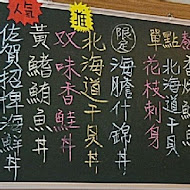 單點
北海道干貝
花枝刺身
限定
海膽什錦丼
推
北海道干貝丼
双味香鮭丼
黃鰭鮪魚丼
人氣
佐賀招牌海鮮丼